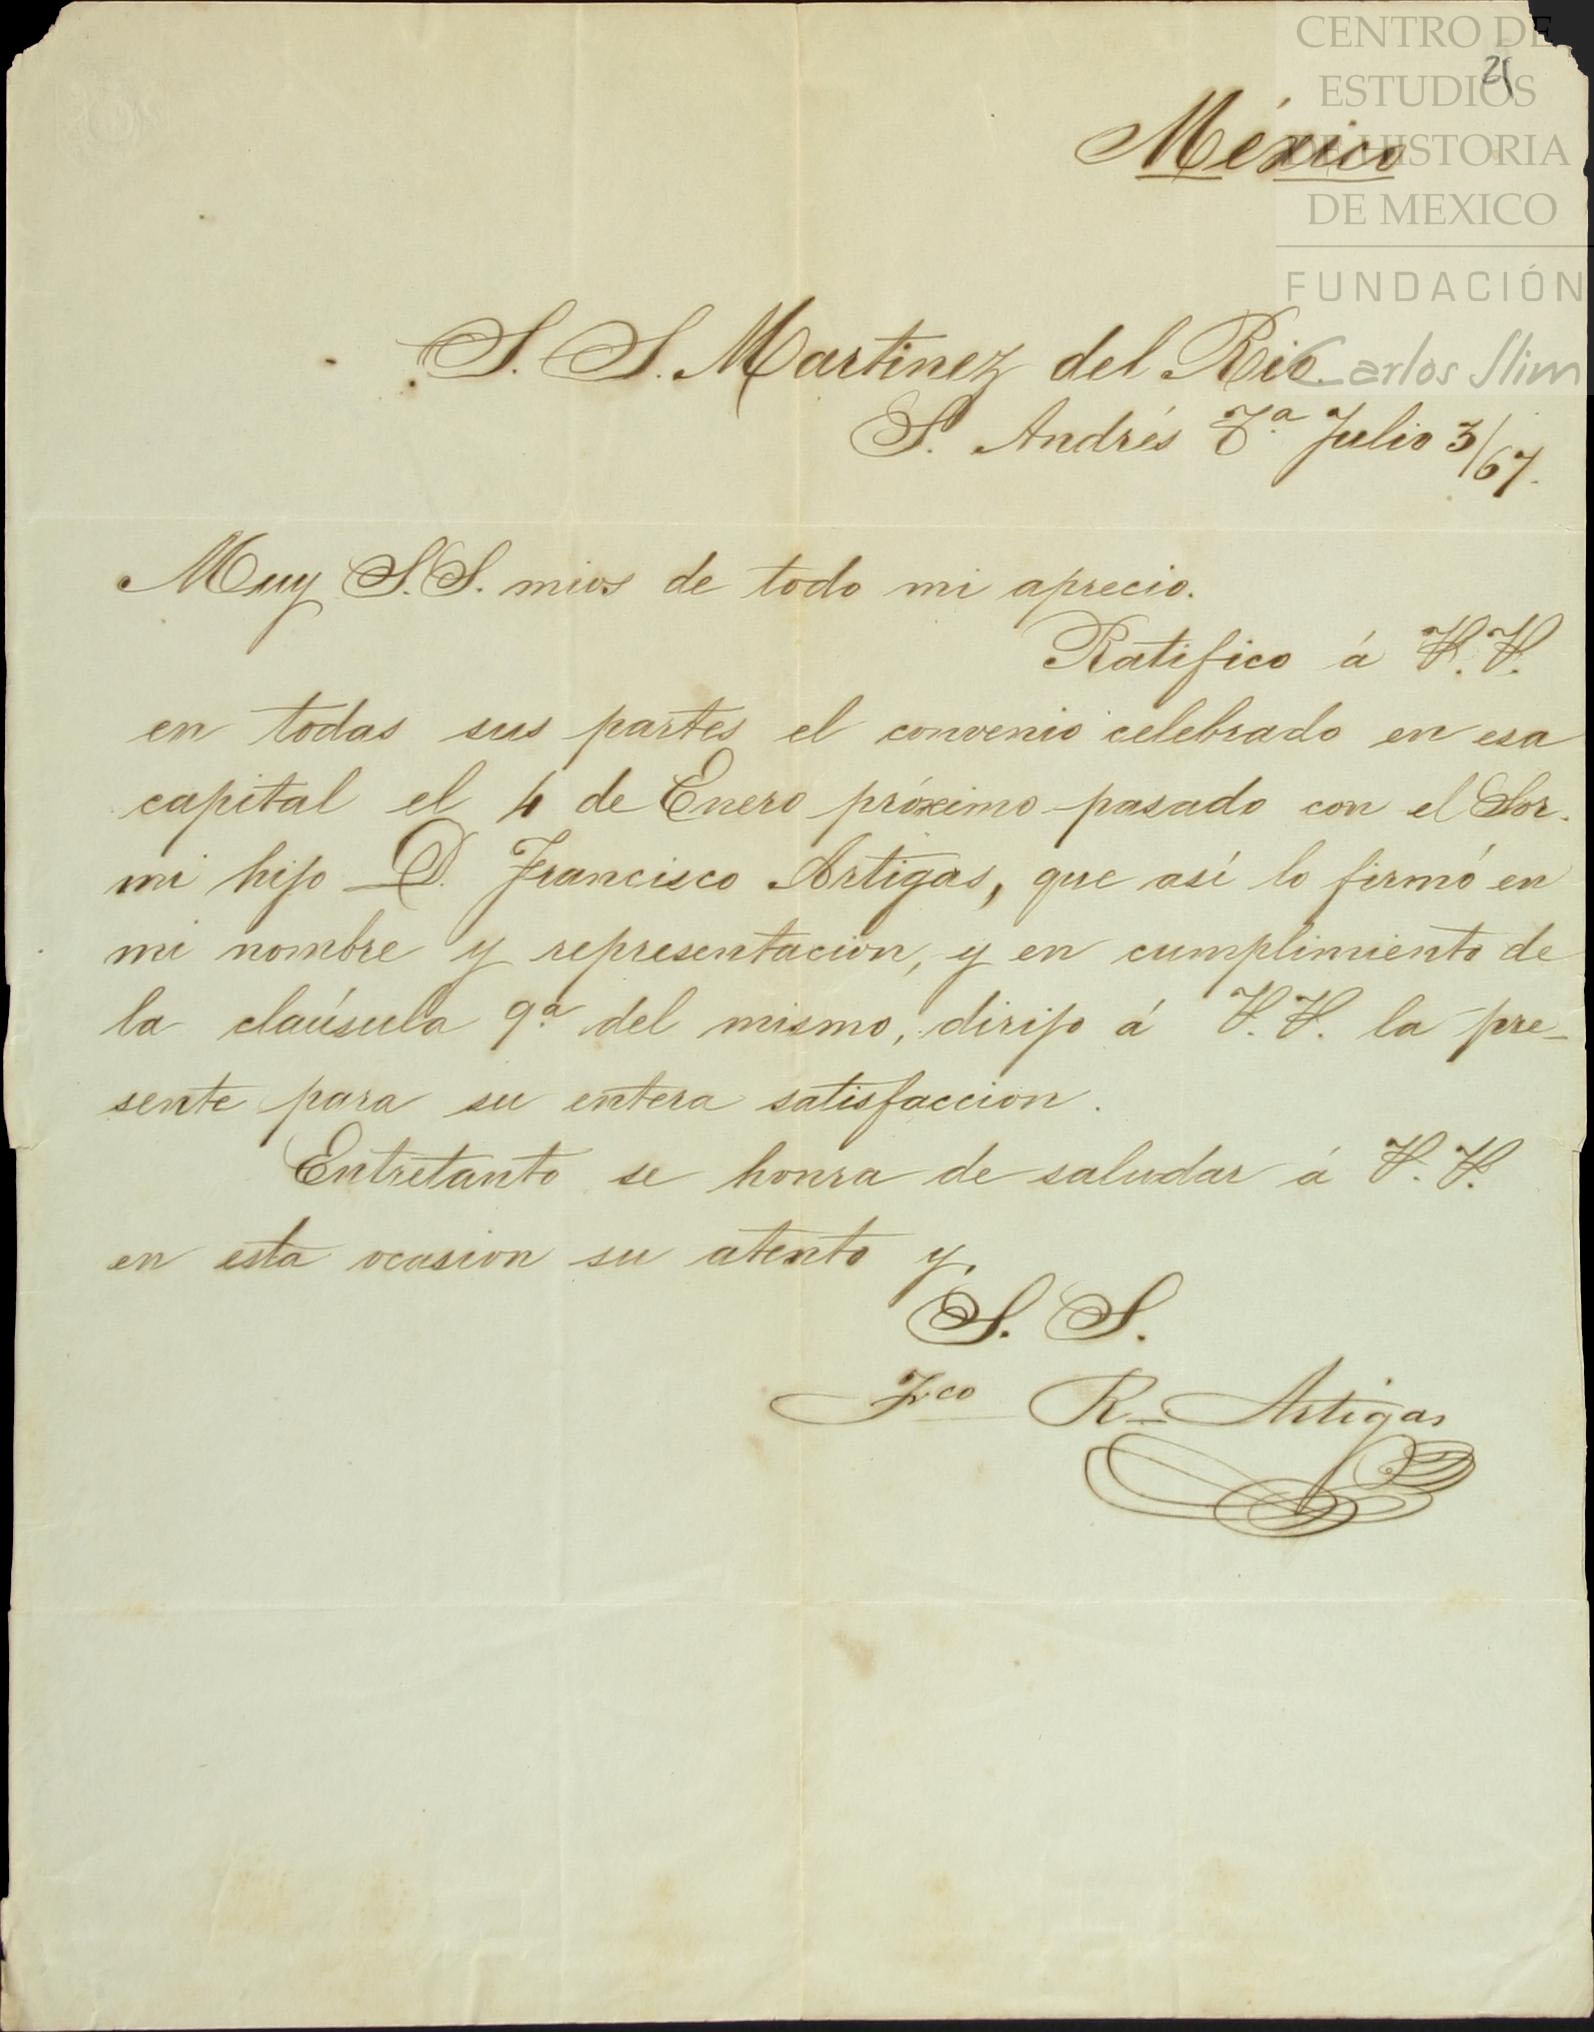 CENTRO DE
ESTUDIOS
DE HISTORIA
DE MEXICO
FUNDACIÓN
Carlos Slim
21
México
S. S. Martinez del Rio.
S. Andrés T.ª Julio 3/67.
Muy S.S. mios de todo mi aprecio.
Ratifico á V.V.
en todas sus partes el convenio celebrado en esa
capital el 4 de Enero próximo pasado con el Sor.
mi hijo D. Francisco Artigas, que así lo firmó en
mi nombre y representacion, y en cumplimiento de
la claúsula 9.ª del mismo, dirijo á V.V. la pre-
sente para su entera satisfaccion.
Entretanto se honra de saludar á V.V.
en esta ocasion su atento y
S. S.
Fco R. Artigas